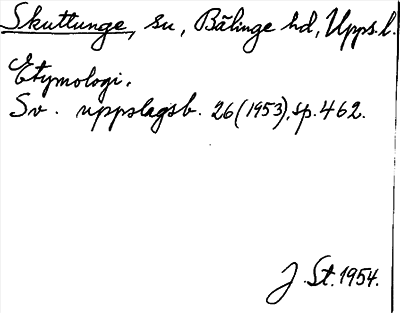 Skuttunge, sn, Bälinge hd, Upps. l.
Etymologi.
Sv. uppslagsb. 26 (1953), sp. 462.
J. St. 1954.